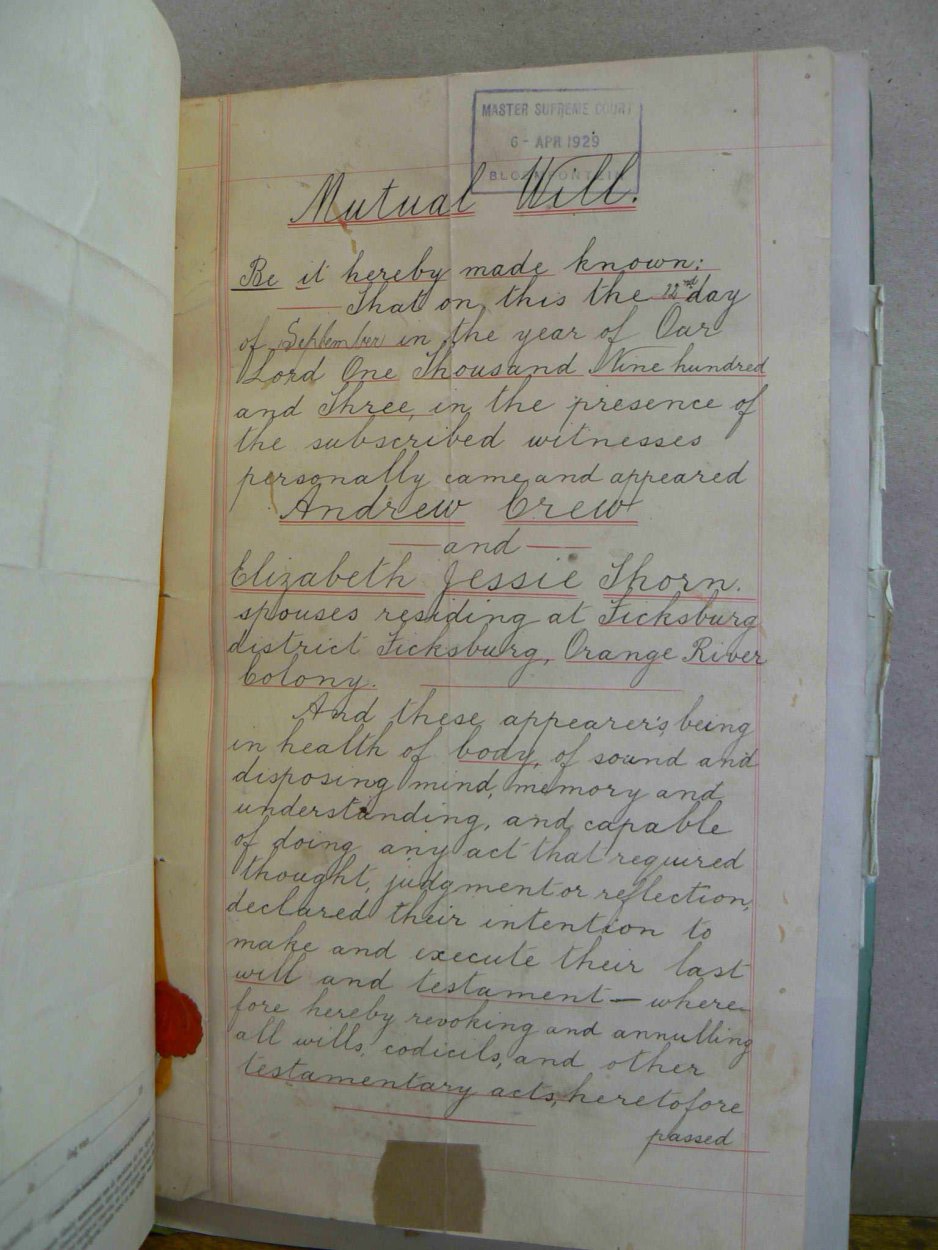 MASTER SUPREME COURT
6 - APR 1929
BLOEMFONTEIN
Mutual Will.
Be it hereby made known:
That on this the 12nd day
of September in the year of Our
Lord One Thousand Nine hundred
and Three, in the presence of
the subscribed witnesses
personally came and appeared
Andrew Crew
and
Elizabeth Jessie Thorn.
spouses residing at Ficksburg
district Ficksburg, Orange River
Colony.
And these appearers being
in health of body, of sound and
disposing mind, memory and
understanding, and capable
of doing any act that required
thought, judgment or reflection,
declared their intention to
make and execute their last
will and testament — where-
fore hereby revoking and annulling
all wills, codicils, and other
testamentary acts, heretofore
passed